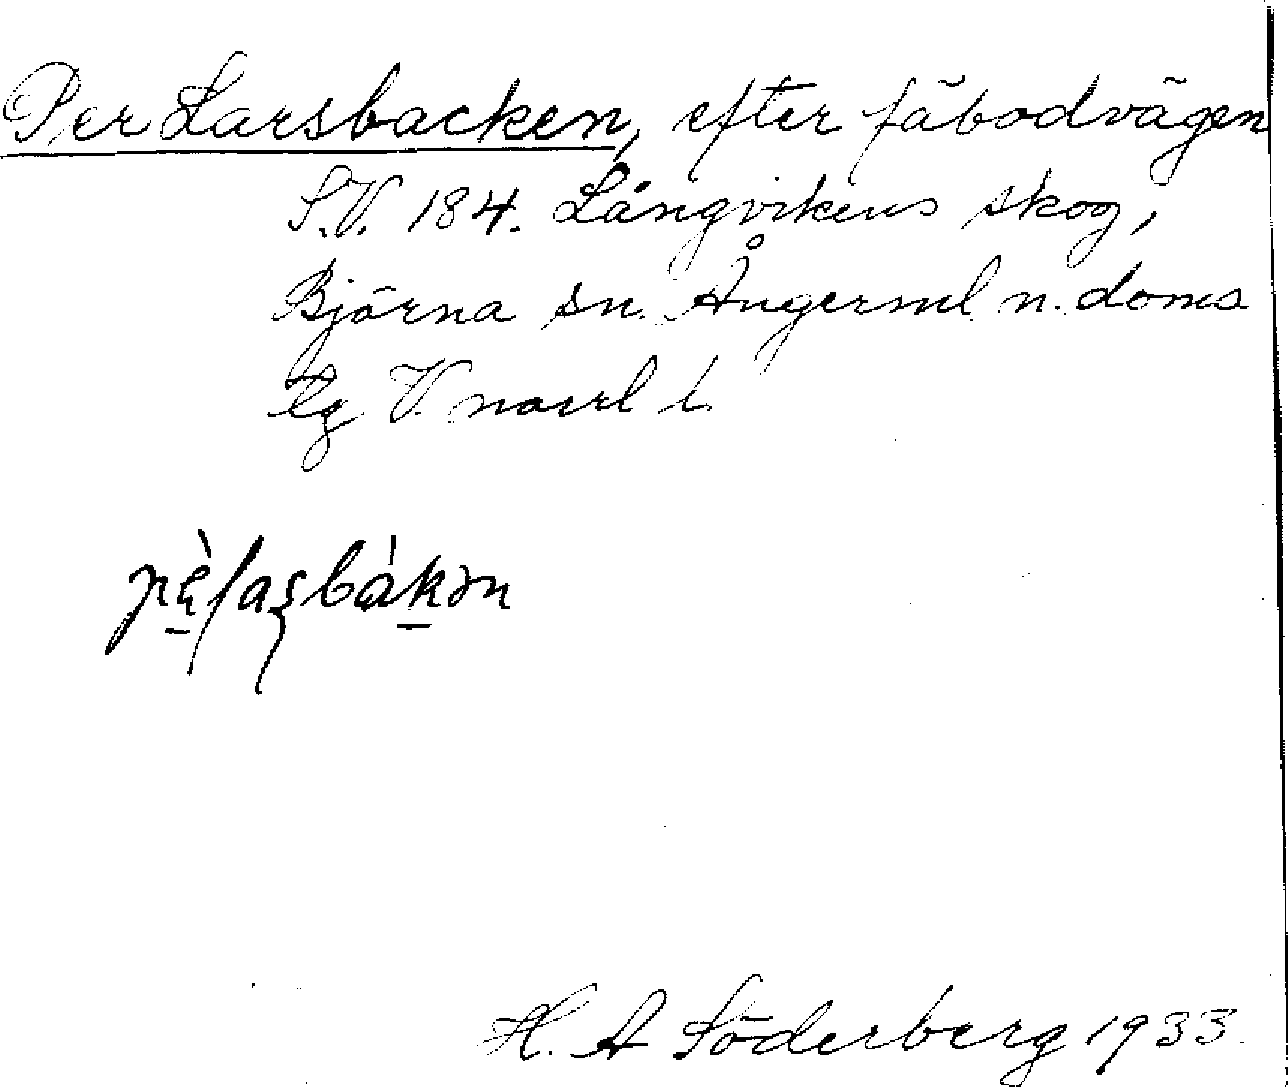 Per Larsbacken, efter fäbodvägen
S.V. 184. Långvikens skog,
Björna sn. Ångerml n. doms
lg V. norrl l.
H. A Söderberg 1933.